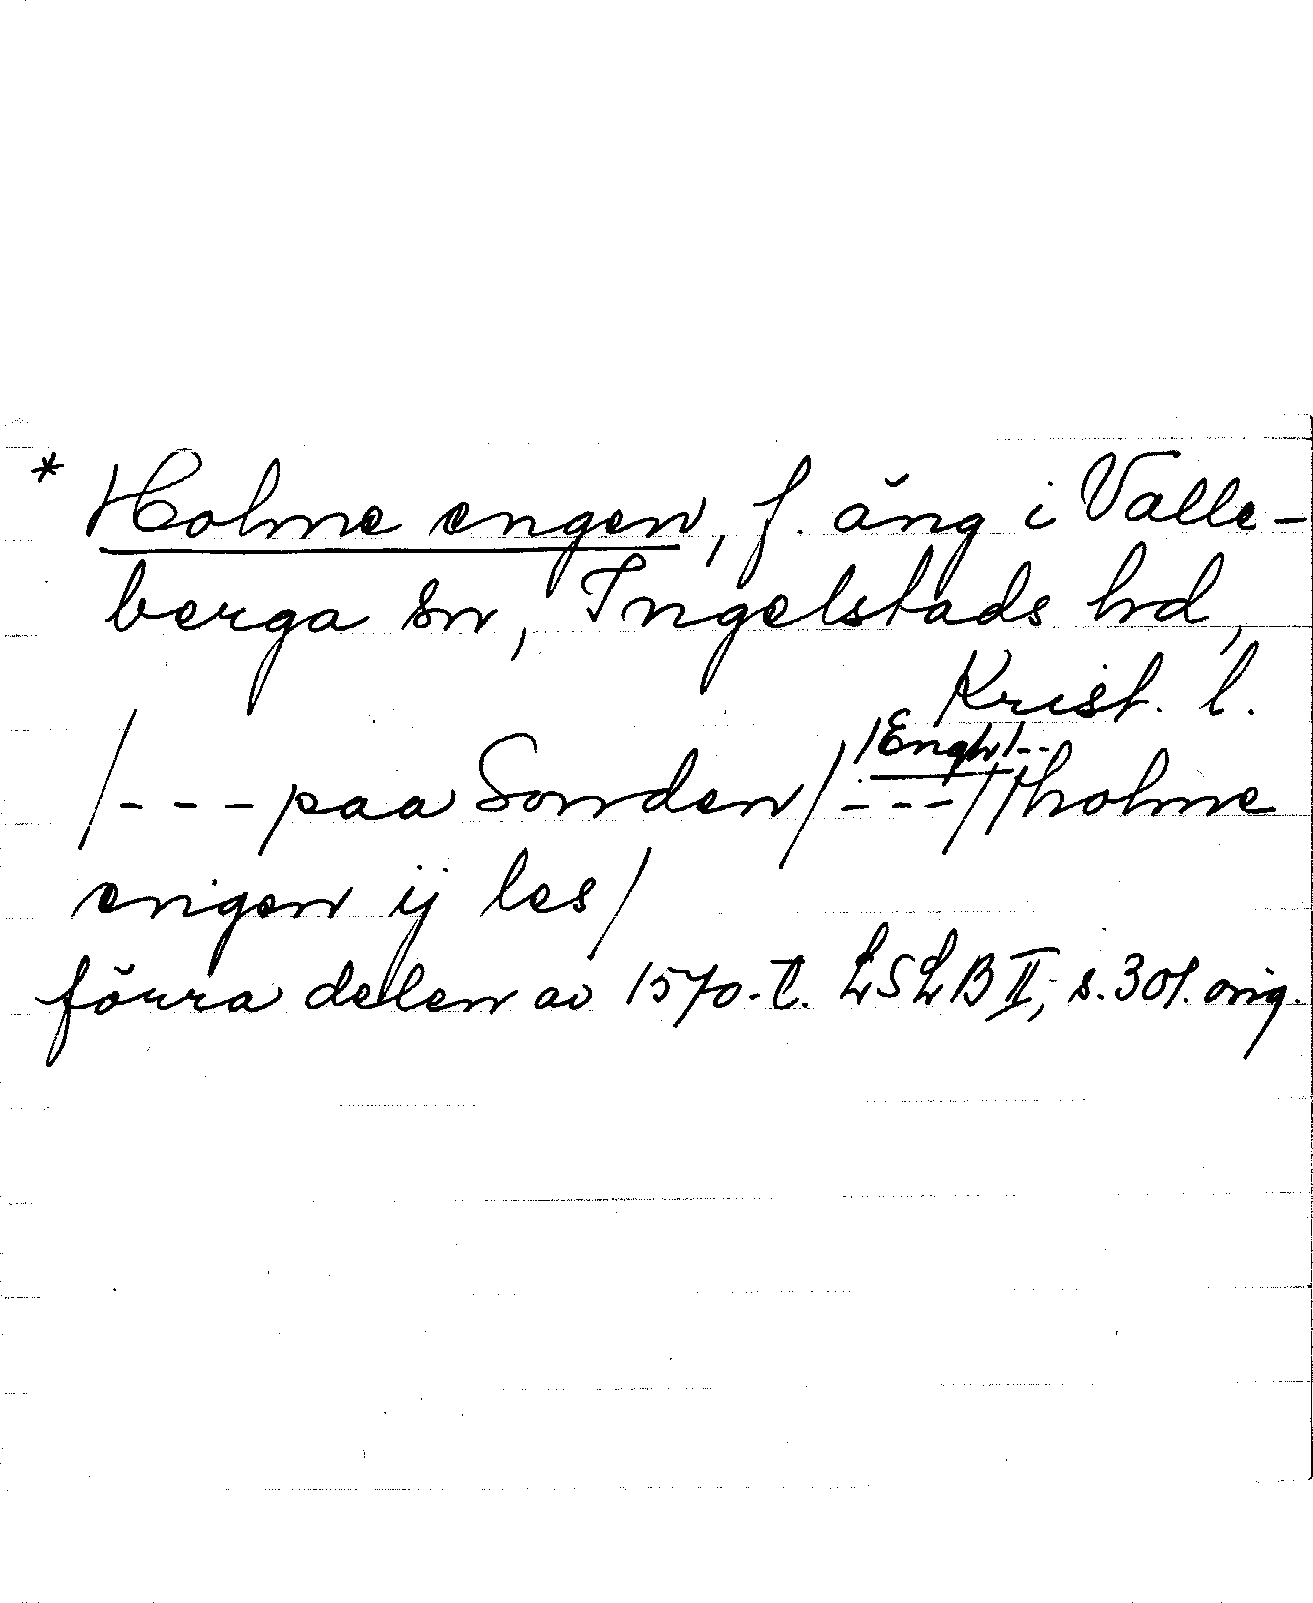 * Holme engen, f. äng i Valle-
berga sn, Ingelstads hd,
Krist. l.
/Engh/--
/--- paa Sonden/ ---/ /holme
engen ij les/
förra delen av 1570-t. LSLB II, s. 301. orig.